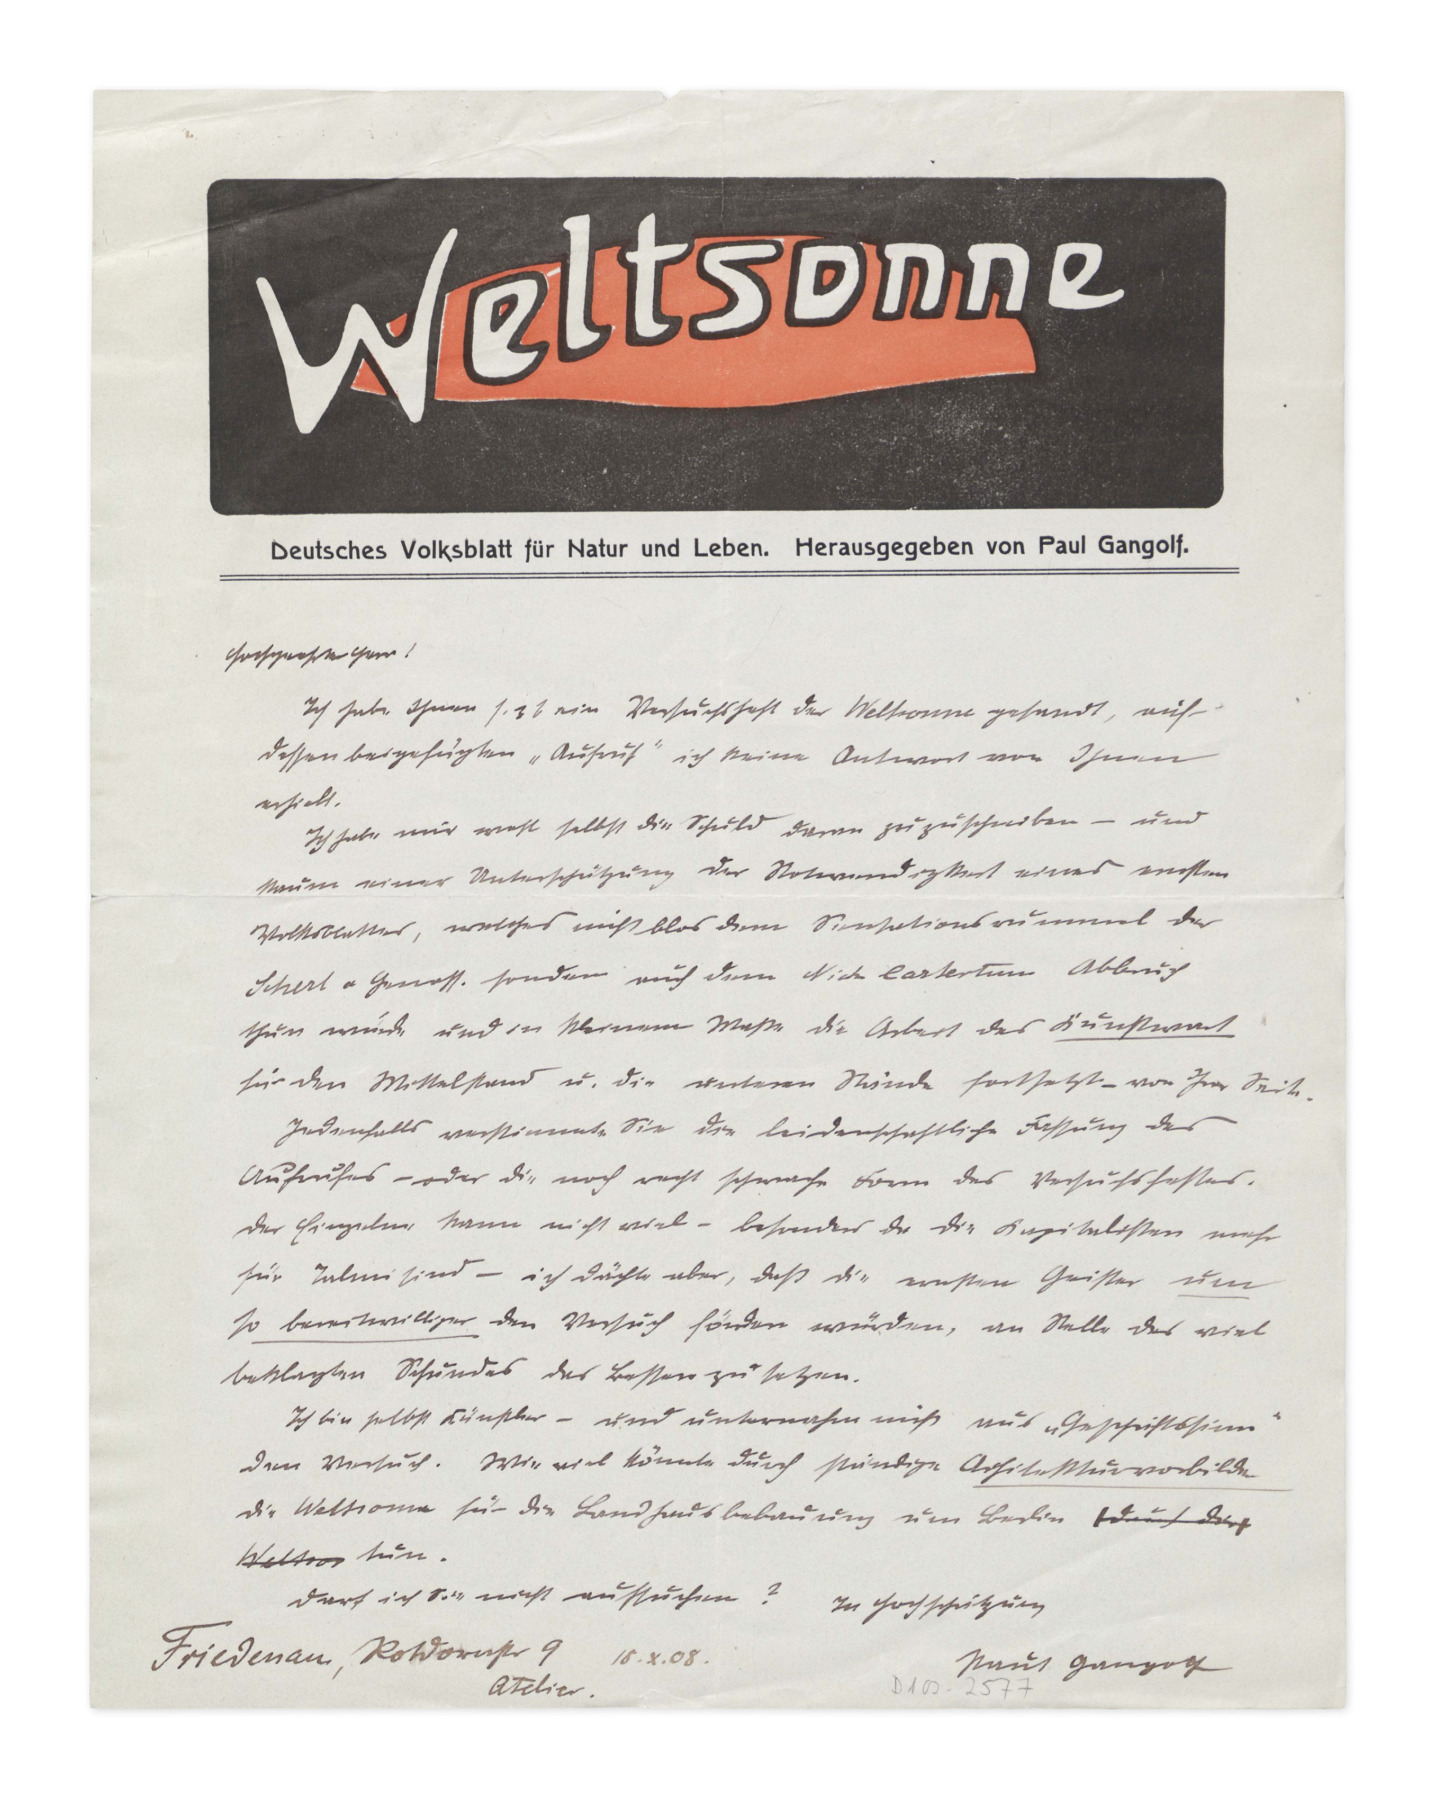 Weltsonne
Deutsches Volksblatt für Natur und Leben. Herausgegeben von Paul Gangolf.
Hochgeehrter Herr!
Ich habe Ihnen s. Zt ein Versuchsheft der Weltsonne gesandt, auf
dessen beigefügten „Aufruf" ich keine Antwort von Ihnen
erhielt.
Ich habe mir wohl selbst die Schuld daran zuzuschreiben — und
kaum einer Unterschätzung der Notwendigkeit eines ernsten
Volksblattes, welches nicht blos dem Sensationsrummel der
Scherl u Genoss. sondern auch dem Nick Cartertum Abbruch
thun würde und in kleinem Maße die Arbeit des Kunstwart
für den Mittelstand u. die unteren Stände fortsetzt — von Ihrer Seite.
Jedenfalls verstimmte Sie die leidenschaftliche Fassung des
Aufrufes — oder die noch recht schwache Form des Versuchsheftes.
Der Einzelne kann nicht viel — besonders da die Kapitalisten mehr
für Talmi sind — ich dächte aber, daß die ernsten Geister um
so bereitwilliger den Versuch fördern würden, an Stelle des viel
beklagten Schundes das Bessere zu setzen.
Ich bin selbst Künstler — und unternahm nicht aus „Geschäftssinn"
den Versuch. Wie viel könnte durch ständige Architekturvorbilder
die Weltsonne für die Landhausbebauung um Berlin
tun.
Darf ich Sie nicht aufsuchen? In Hochschätzung
Friedenau, Rotdornstr 9 18.X.08. Paul Gangolf
Atelier.
D 103. 2577